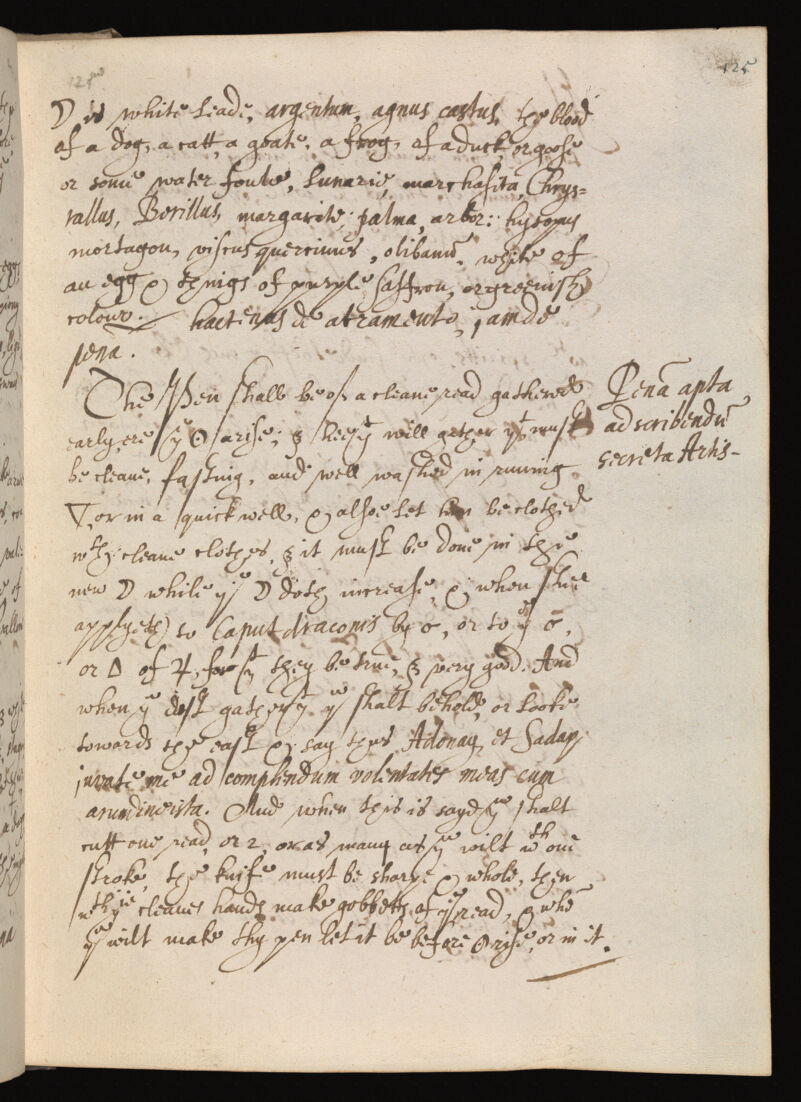 125
125
☽ is white leade, argentum, agnus castus, the blood
of a dog, a catt, a goate, a frog, of a duck or goose
or some water foule, Lunarie, marchasita, Chrys=
tallus, Berillus, margarite, palma, arbor: hysopus
mortagon, viscus quercinus, olibanū, white of
an egg & things of purple saffron, or greenish
colour. hactenus de atramento, jam de
pena.
The Pen shall be of a cleane read gathered
early, ere yͤ ☉ arise; & hee yͭ will gather yͭ must
be cleane, fasting, and well washed in runing
▽, or in a quick well, & alsoe let him be clothed
wᵗʰ cleane clothes, & it must be done in the
new ☽ while yͤ ☽ doth increase, & when shee
applyeth to Caput draconis by ☌, or to yͤ ☌,
or △ of ♃, for yͭ they be true, & very good. And
when yᵘ dost gather yͭ yᵘ shalt behold, or looke
towards the east & say thus Adonay, et Saday
juvate me ad complendum volentates meas cum
arundine ista. And when this is sayd yᵘ shalt
cutt one read, or 2, or as many as yᵘ wilt wᵗʰ one
stroke, the knife must be sharpe & whole, then
wᵗʰ cleane hands make gobbets of yͤ read, & whē
yᵘ wilt make thy pen let it be before ☉ rise, or in it.
Penā apta
ad scribendū
secreta Artis-